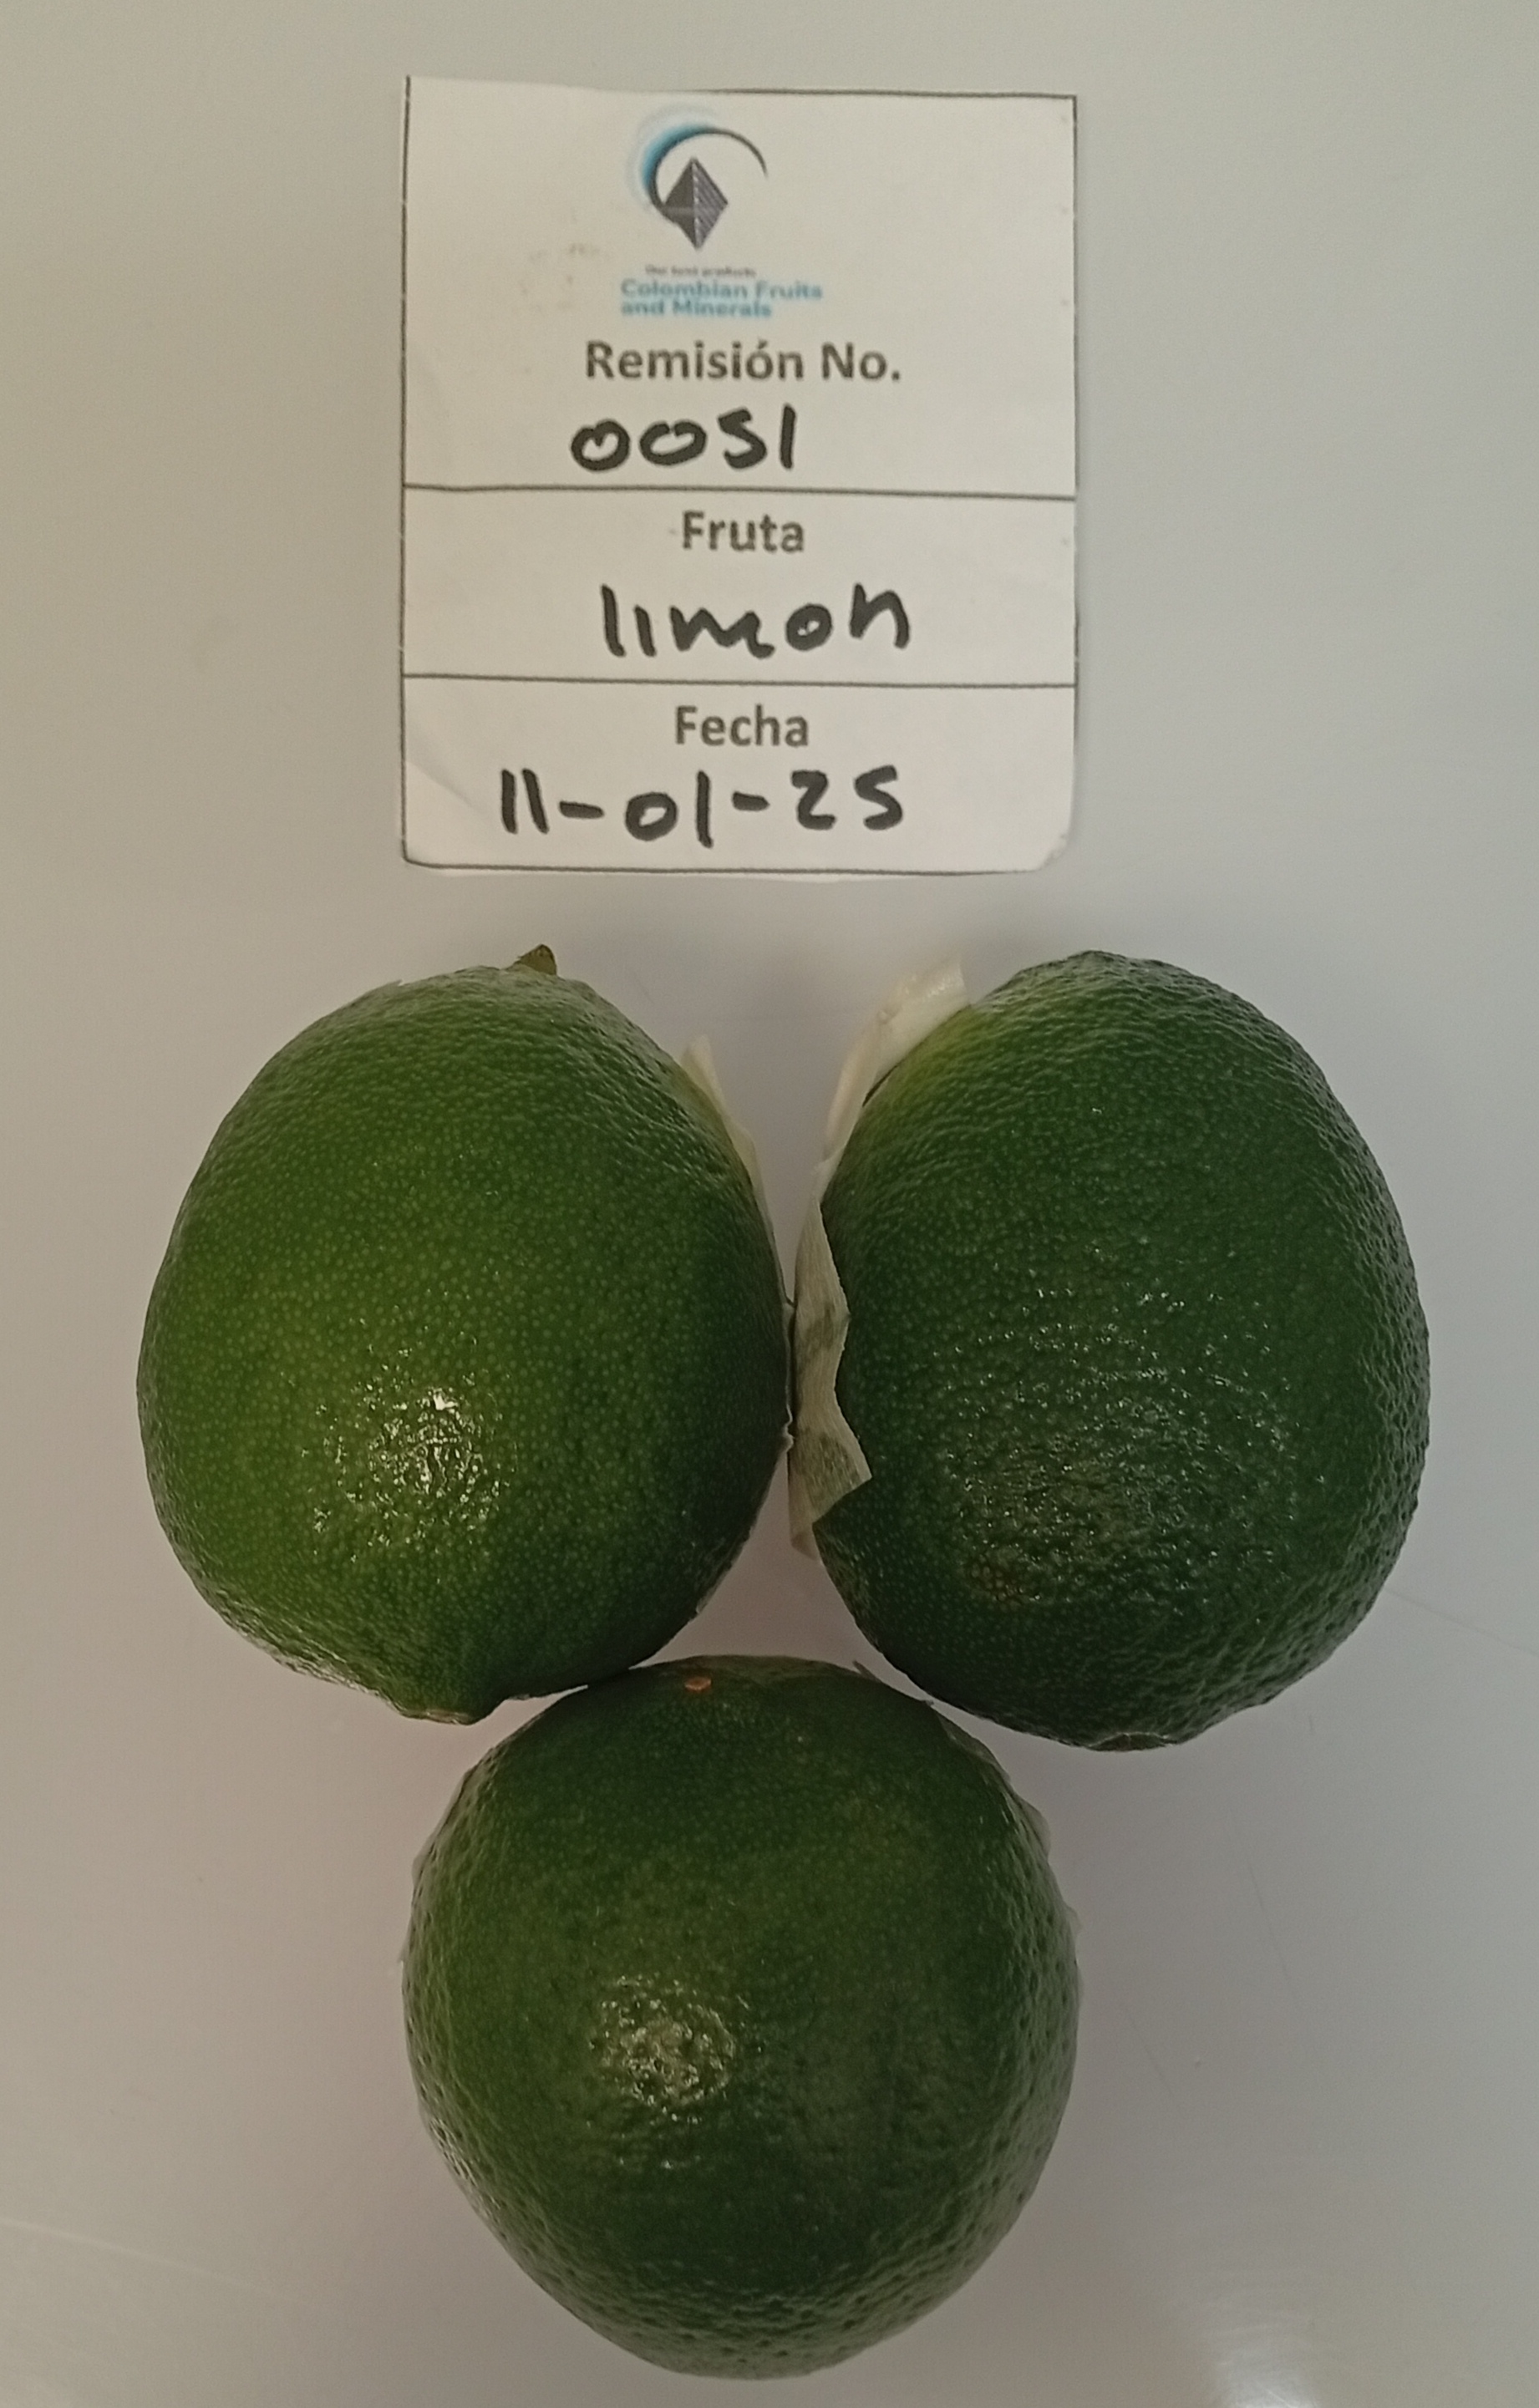 Our best products
Colombian Fruits
and Minerals
Remisión No.
0051
Fruta
limon
Fecha
11-01-25